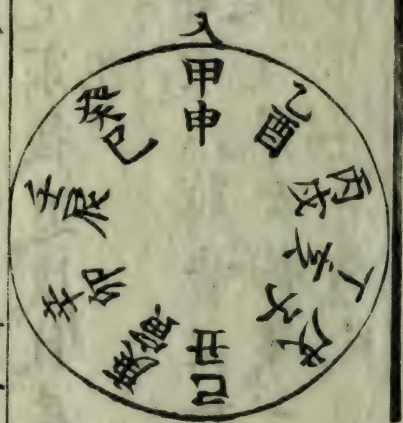 甲申
乙酉
丙戌
丁亥
戊子
己丑
庚寅
辛卯
壬辰
癸巳